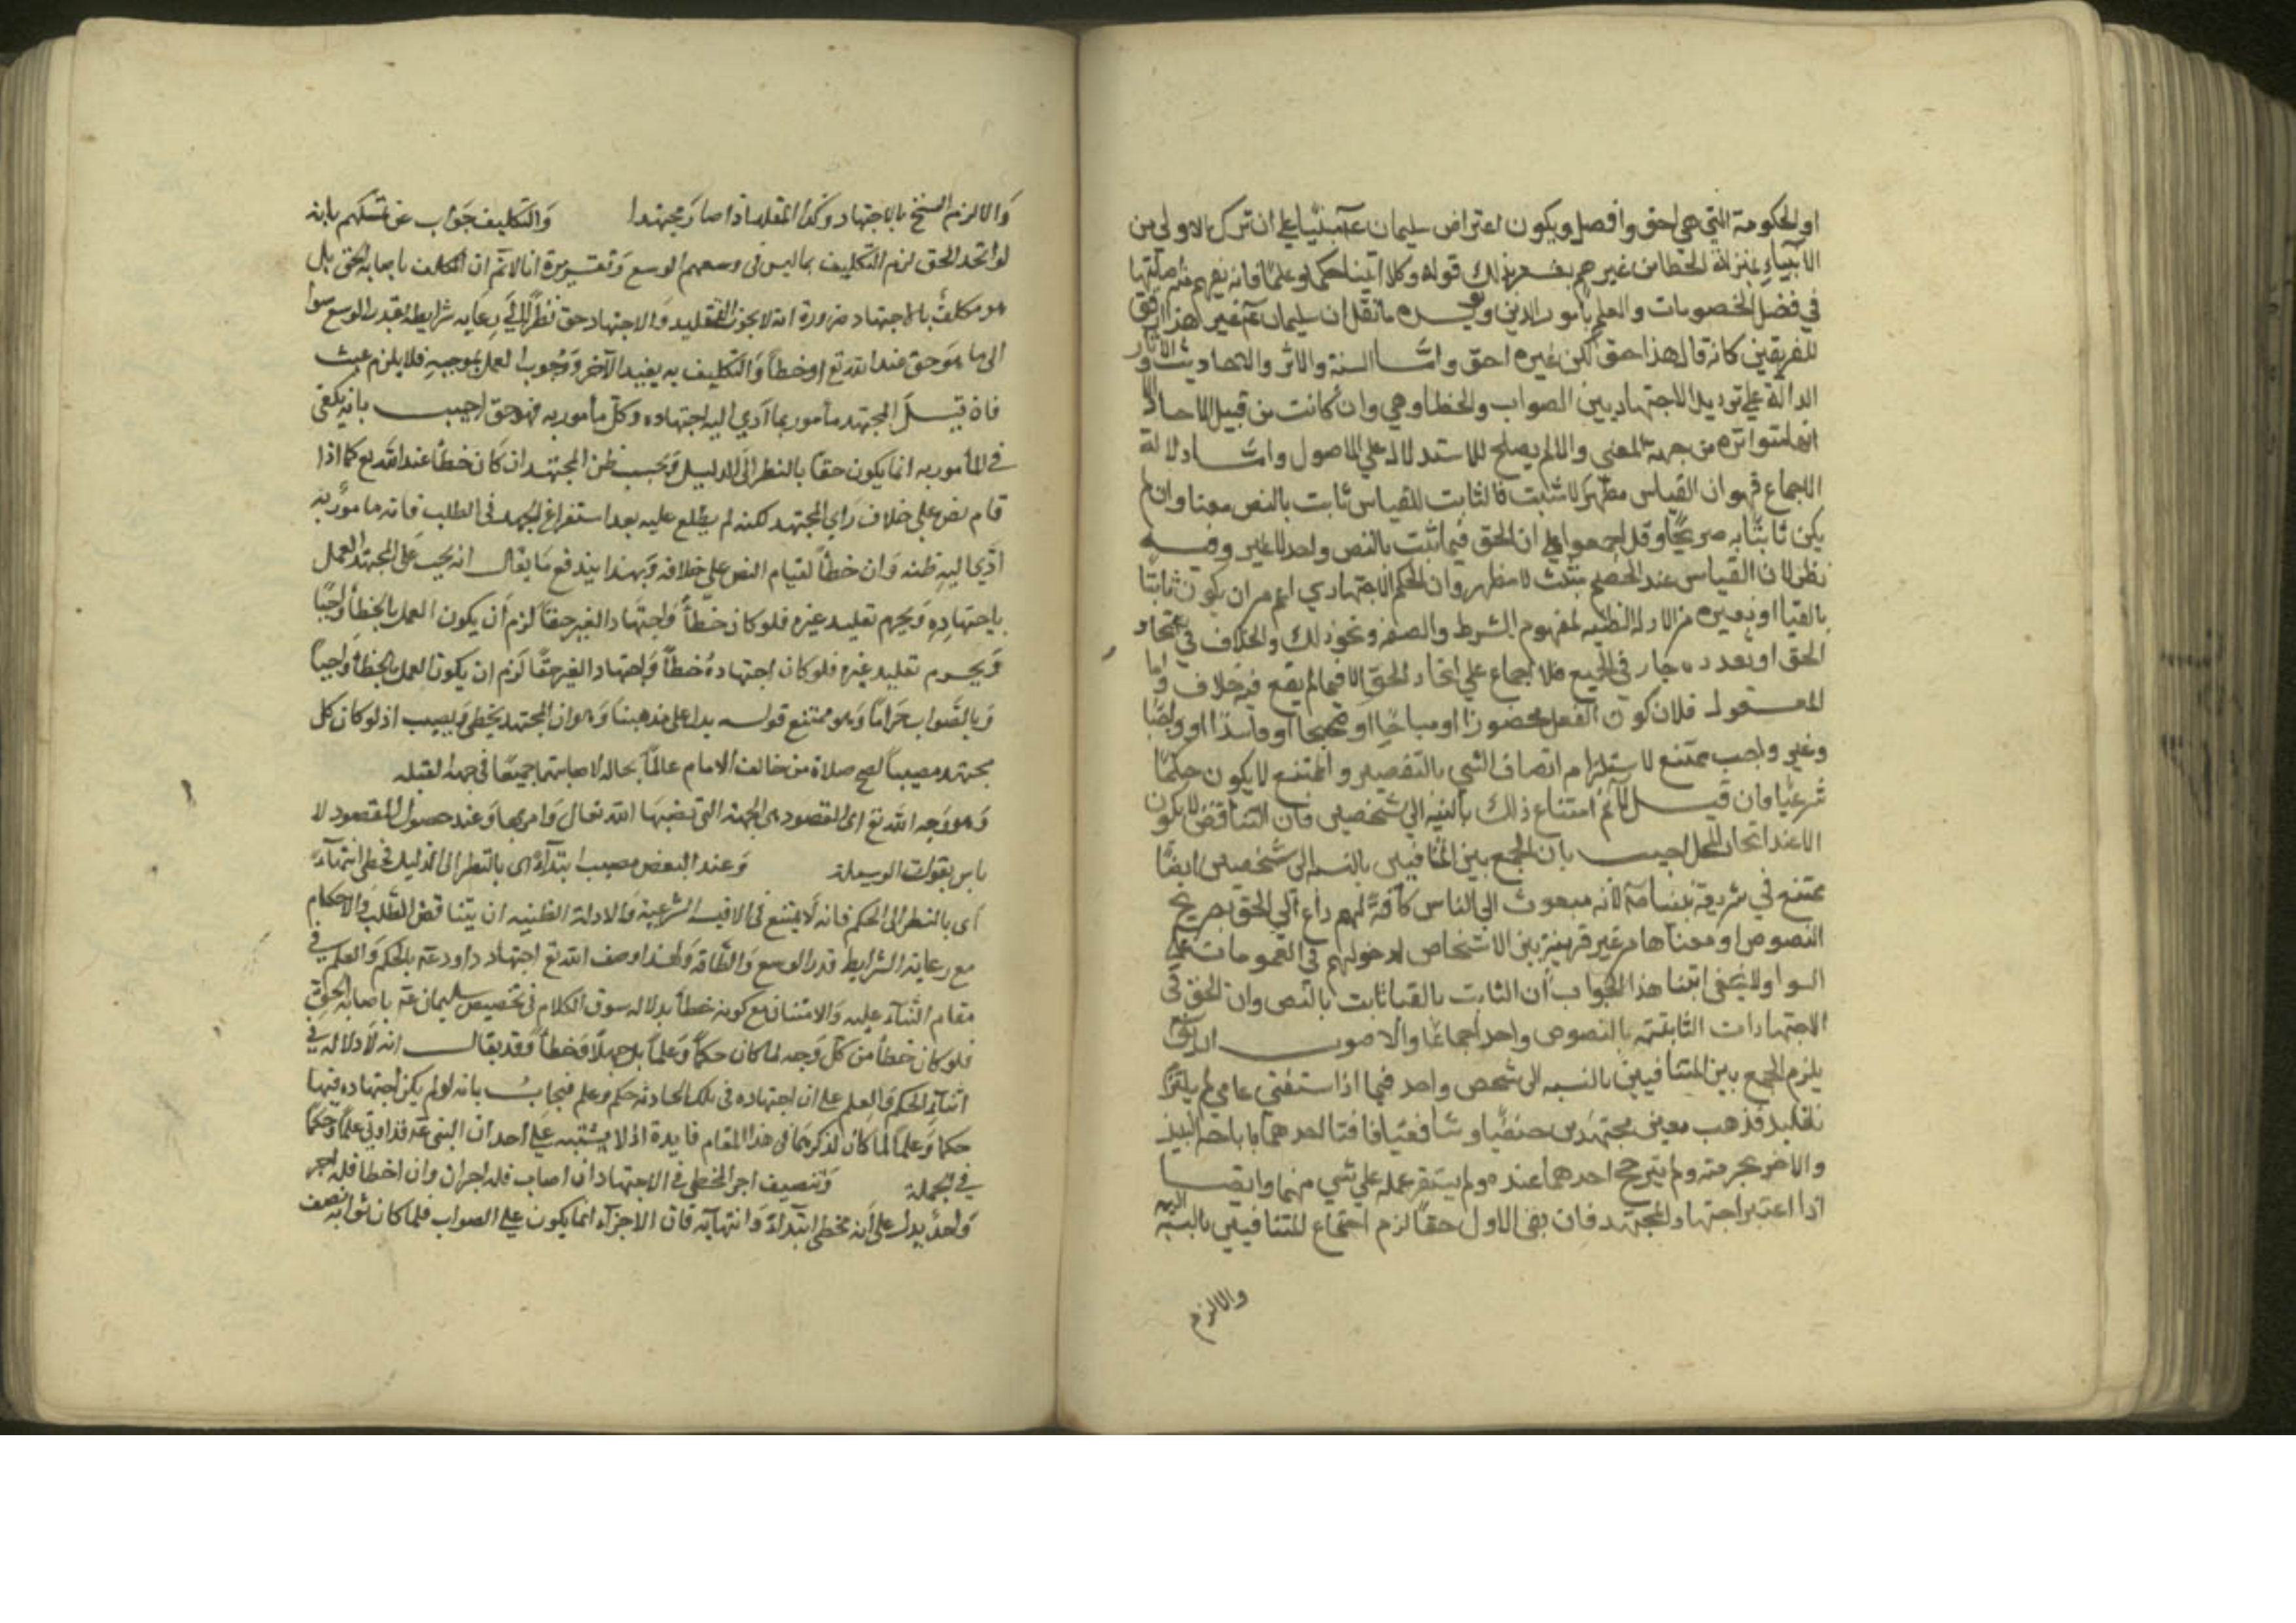 او الحكومة التي هي احق وافصل ويكون اعتراض سليمان عم مبنيا علي ان ترك الاولي من
الانبياء بمنزلة الخطا من غيرهم يشعر بذلك قوله وكلا اتينا حكما وعلما فانه يفهم منه اصابتها
في فصل الخصومات والعلم بامور الدين ما نقل ان سليمان عم غير هذا ارفق
للفريقين كانه قال هذا حق لكن غيره احق واما السنة والاثر والاحاديث والآثار
الدالة علي ترديد الاجتهاد بين الصواب والخطا وهي وان كانت من قبيل الاحاد الا
انها متواترة من جهة المعني والا لم يصلح للاستدلال علي الاصول واما دلالة
الاجماع فهو ان القياس مظهر لا مثبت فالثابت للقياس ثابت بالنص معنا وان لم
يكن ثابتا به صريحا وقد اجمعوا علي ان الحق فيما ثبت بالنص واحد لا غير وفيه
نظر لان القياس عند الخصم مثبت لا مظهر وان الحكم الاجتهادي اعم من ان يكون ثابتا
بالقيا او بغيره من الادلة الظنية لمفهوم الشرط والصفه ونحو ذلك والخلاف في اتحاد
الحق او تعدده جار في الجميع فلا اجماع علي اتحاد الحق الا فيما لم يقع فيه خلاف واما
المعقول فلان كون الفعل محضورا او مباحا او صحيحا او فاسدا او واجبا
وغير واجب ممتنع لاستلزام اتصاف الشي بالنقيضين والممتنع لا يكون حكما
شرعيا فان قيل لا نم امتناع ذلك بالنسبه الي شخصين فان التناقض لا يكون
الا عند اتحاد المحل اجيب بان الجمع بين المتنافيين بالنسبه الي شخصين ايضا
ممتنع في شريعة نبينا عم لانه مبعوث الي الناس كافة لهم داع الي الحق بصريح
النصوص او معناها من غير تفرقة بين الاشخاص لدخولهم في العمومات علي
السوا ولا يخفى ابتنا هذا الجواب ان الثابت بالقيا ثابت بالنص وان الحق في
الاجتهادات الثابتة بالنصوص واحد اجماعا والاصوب ان يقال
يلزم الجمع بين المتنافيين بالنسبه الي شخص واحد فيما اذا استفتى عامي لم يلتزم
تقليد مذهب معين مجتهدين حنفيا وشافعيا فافتا احدهما باباحة النبيذ
والاخر بحرمته ولم يترجح احدهما عنده ولم يستقر عمله علي شي منهما وايضا
اذا اعتبر اجتهاد المجتهد فان بقى الاول حقا لزم اجتماع المتنافيين بالنسبة اليه
والا لزم
والا لزم النسخ بالاجتهاد وكذا المقلد اذا صار مجتهدا والتكليف جواب عن تمسكهم بانه
لو اتحد الحق لزم التكليف بما ليس في وسعهم الوسع وتقريره انا لا نم ان المكلف باصابة الحق بل
هو مكلف بالاجتهاد ضرورة انه لا يجوز التقليد والاجتهاد حق نظرا الي رعايه شرايطه بقدر الوسع سوا
الى ما هو حق عند الله تع او خطأ والتكليف به يفيد الآخر ووجوب العمل بموجبه فلا يلزم عبث
فان قيل المجتهد مأمور بما ادي اليه اجتهاده وكل مأمور به فهو حق اجيب بانه يكفى
في المأمور به انما يكون حقا بالنظر الى الدليل وبحسب ظن المجتهد ان كان خطأ عند الله تع كما اذا
قام نص على خلاف راي المجتهد لكنه لم يطلع عليه بعد استفراغ الجهد في الطلب فانه مامور به
ادي اليه ظنه وان خطأ لقيام النص علي خلافه وبهذا يندفع ما يقال انه يجب على المجتهد العمل
باجتهاده ويحرم تقليد غيره فلو كان خطأ واجتهاد الغير حقا لزم أن يكون العمل بالخطأ واجبا
ويحرم تقليد غيره فلو كان اجتهاده خطأ واجتهاد الغير حقا لزم ان يكون العمل بالخطأ واجبا
وبالصواب حراما وهو ممتنع قوله يدل على مذهبنا وهو ان المجتهد يخطى ويصيب اذ لو كان كل
مجتهد مصيبا لصح صلاة من خالف الامام عالما بحاله لاصابتهما جميعا في جهة القبلة
وهو وجه الله تع اى المقصود هي الجهة التي نصبها الله تعالى وامر بها وعند حصول المقصود لا
باس بفوات الوسيلة وعند البعض مصيب ابتدآء اى بالنظر الى الدليل مخطى انتهاء
اى بالنظر الى الحكم فانه لا يمتنع في الاقيسة الشرعية والادلة الظنيه ان يتناقض الطلب والاحكام
مع رعاية الشرايط قدر الوسع والطاقة ولهذا وصف الله تع اجتهاد داود عم بالحكم والعلم في
مقام الثناء عليه والامتنان مع كونه خطأ بدلاله سوق الكلام في تخصيص سليمان عم باصابة الحق
فلو كان خطأ من كل وجه لما كان حكما وعلما بل جهلا وخطأ وقد يقال انه لا دلاله في
اثبات الحكم والعلم على ان اجتهاده في تلك الحادثه حكم وعلم فيجاب بانه لو لم يكن اجتهاده فيها
حكما وعلما لما كان لذكرهما في هذا المقام فايدة اذ لا يشتبه على احد ان النبي عم قد اوتي علما وحكما
في الجملة وتنصيف اجر المخطى في الاجتهاد ان اصاب فله اجران وان اخطا فله اجر
واحد يدل على أنه مخطى ابتدآء وانتهآء فان الاجزآء انما يكون على الصواب فلما كان ثوابه نصف